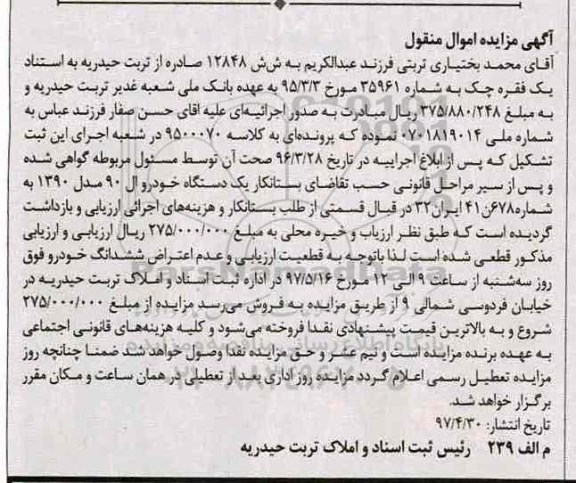 آگهی مزایده اموال منقول
آقای محمد بختیاری تربتی فرزند عبدالکریم به ش‌ش ۱۲۸۴۸ صادره از تربت حیدریه به استناد
یک فقره چک به شماره ۳۵۹۶۱ مورخ ۹۵/۳/۳ به عهده بانک ملی شعبه غدیر تربت حیدریه و
به مبلغ ۳۷۵/۸۸۰/۲۴۸ ریال مبادرت به صدور اجرائیه‌ای علیه اقای حسن صفار فرزند عباس به
شماره ملی ۰۷۰۱۸۱۹۰۱۴ نموده که پرونده‌ای به کلاسه ۹۵۰۰۰۷۰ در شعبه اجرای این ثبت
تشکیل که پس از ابلاغ اجراییه در تاریخ ۹۶/۳/۲۸ صحت آن توسط مسئول مربوطه گواهی شده
و پس از سیر مراحل قانونی حسب تقاضای بستانکار یک دستگاه خودرو ال ۹۰ مدل ۱۳۹۰ به
شماره۶۷۸ن۴۱ ایران۳۲ در قبال قسمتی از طلب بستانکار و هزینه‌های اجرائی ارزیابی و بازداشت
گردیده است که طبق نظر ارزیاب و خبره محلی به مبلغ ۲۷۵/۰۰۰/۰۰۰ ریال ارزیابی و ارزیابی
مذکور قطعی شده است لذا باتوجه به قطعیت ارزیابی و عدم اعتراض ششدانگ خودرو فوق
روز سه‌شنبه از ساعت ۹ الی ۱۲ مورخ ۹۷/۵/۱۶ در اداره ثبت اسناد و املاک تربت حیدریه در
خیابان فردوسی شمالی ۹ از طریق مزایده به فروش می‌رسد مزایده از مبلغ ۲۷۵/۰۰۰/۰۰۰
شروع و به بالاترین قیمت پیشنهادی نقدا فروخته می‌شود و کلیه هزینه‌های قانونی اجتماعی
به عهده برنده مزایده است و نیم عشر و حق مزایده نقدا وصول خواهد شد ضمنا چنانچه روز
مزایده تعطیل رسمی اعلام گردد مزایده روز اداری بعد از تعطیلی در همان ساعت و مکان مقرر
برگزار خواهد شد.
تاریخ انتشار: ۹۷/۴/۳۰
م الف ۲۳۹ رئیس ثبت اسناد و املاک تربت حیدریه